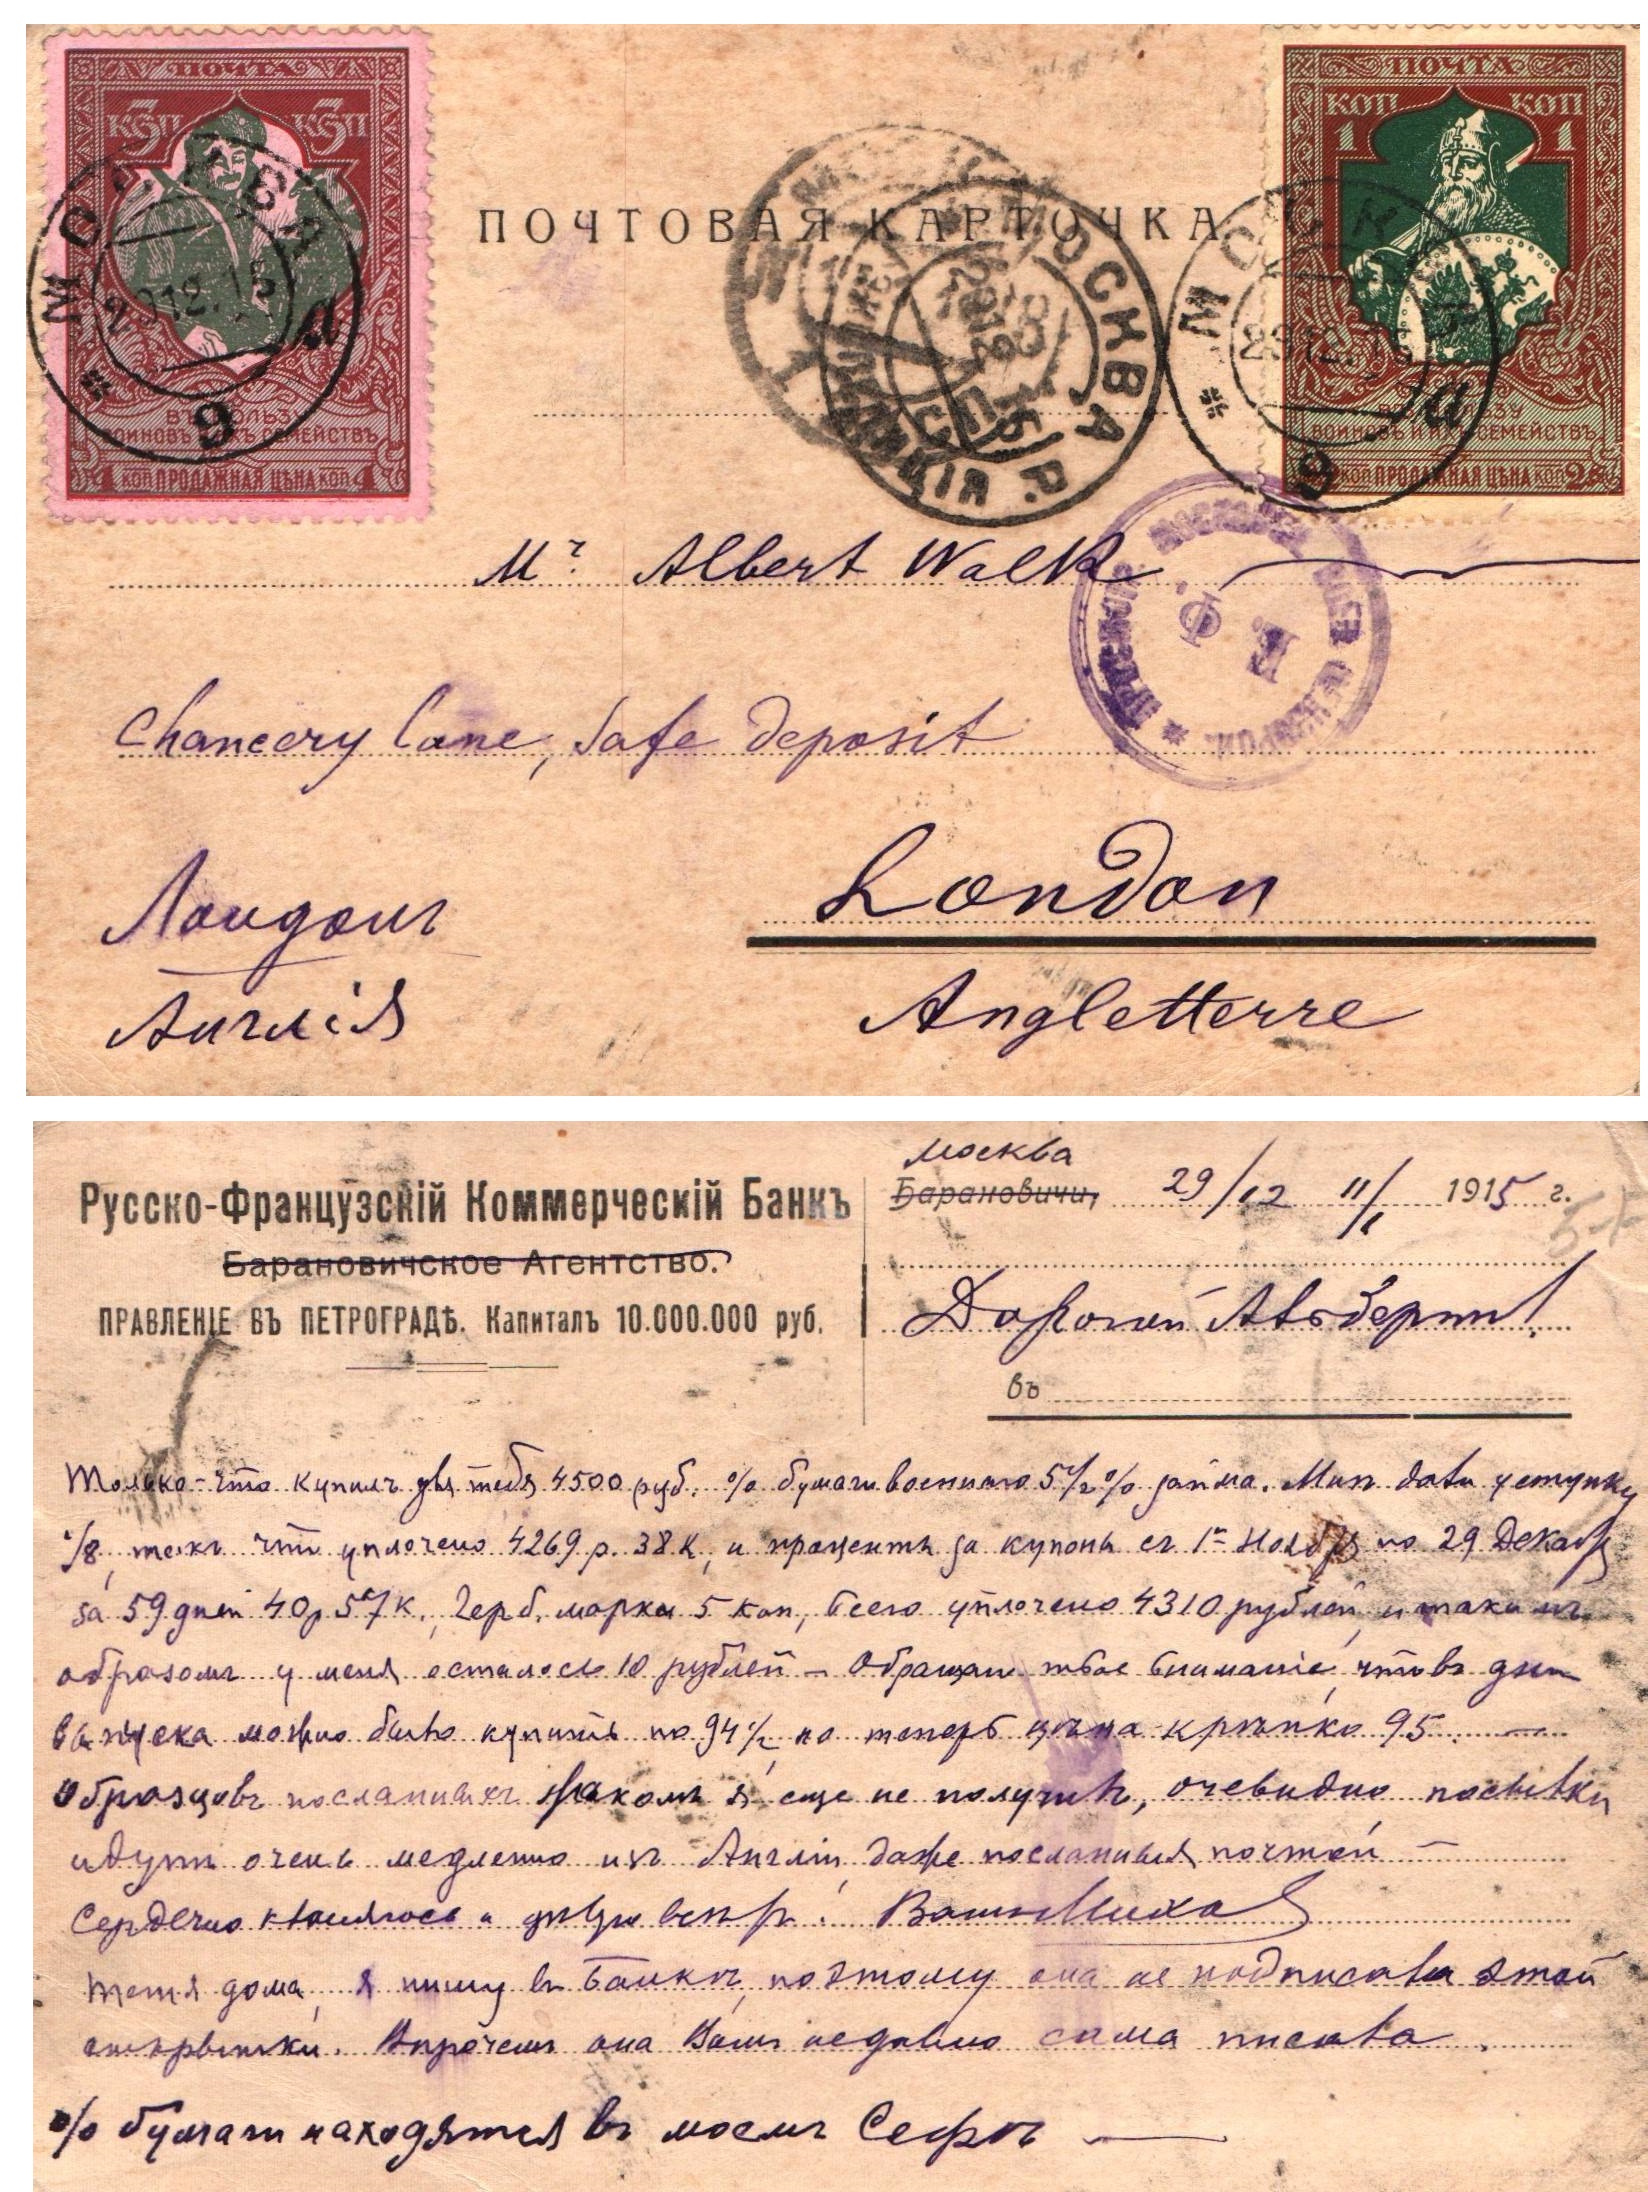 ПОЧТА
КОП 3 КОП 3
ВЪ ПОЛЬЗУ
ВОИНОВЪ И ИХЪ СЕМЕЙСТВЪ
4 КОП ПРОДАЖНАЯ ЦѢНА КОП 4
МОСКВА
29.12.15
9
ПОЧТОВАЯ КАРТОЧКА
МОСКВА Р.
ЭКСПЕДИЦІЯ
ПОЧТА
КОП 1 КОП 1
ВЪ ПОЛЬЗУ
ВОИНОВЪ И ИХЪ СЕМЕЙСТВЪ
2 КОП ПРОДАЖНАЯ ЦѢНА КОП 2
МОСКВА
9
Mr. Albert Walk
Chancery Lane, Safe Deposit
Лондонъ London
Англія Angletterre
Москва
Русско-Французскій Коммерческій Банкъ
Барановичи, 29/12 11/1 1915 г.
Барановичское Агентство.
ПРАВЛЕНІЕ ВЪ ПЕТРОГРАДѢ. Капиталъ 10.000.000 руб.
Дорогой Альбертъ!
въ
Только-что купилъ для тебя 4500 руб. % бумаги военнаго 5½% займа. Мнѣ дали уступку
1/8, такъ что уплочено 4269 р. 38 к, и проценты за купонъ съ 1го Ноября по 29 Декабр
за 59 дней 40 р 57 к, герб. марка 5 коп, всего уплочено 4310 рублей, и такимъ
образомъ у меня осталось 10 рублей – Обращаю твое вниманіе, что въ дни
выпуска можно было купить по 94½ но теперь цѣна крѣпко 95. —
Образцовъ посланныхъ я еще не получилъ, очевидно посылки
идутъ очень медленно изъ Англіи, даже посланныя почтой —
Сердечно кланяюсь и Вашъ Миха
Тетя дома, я пишу въ Банкѣ, поэтому она не подписала этой
открытки. Впрочемъ она Вамъ недавно сама писала.
% бумаги находятся въ моемъ Сефѣ —